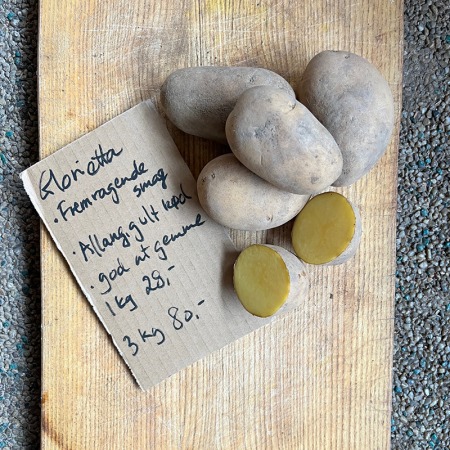 Glorietta
• Fremragende
smag
• Allang gult kød
• god at gemme
1 kg 28,-
3 kg 80,-